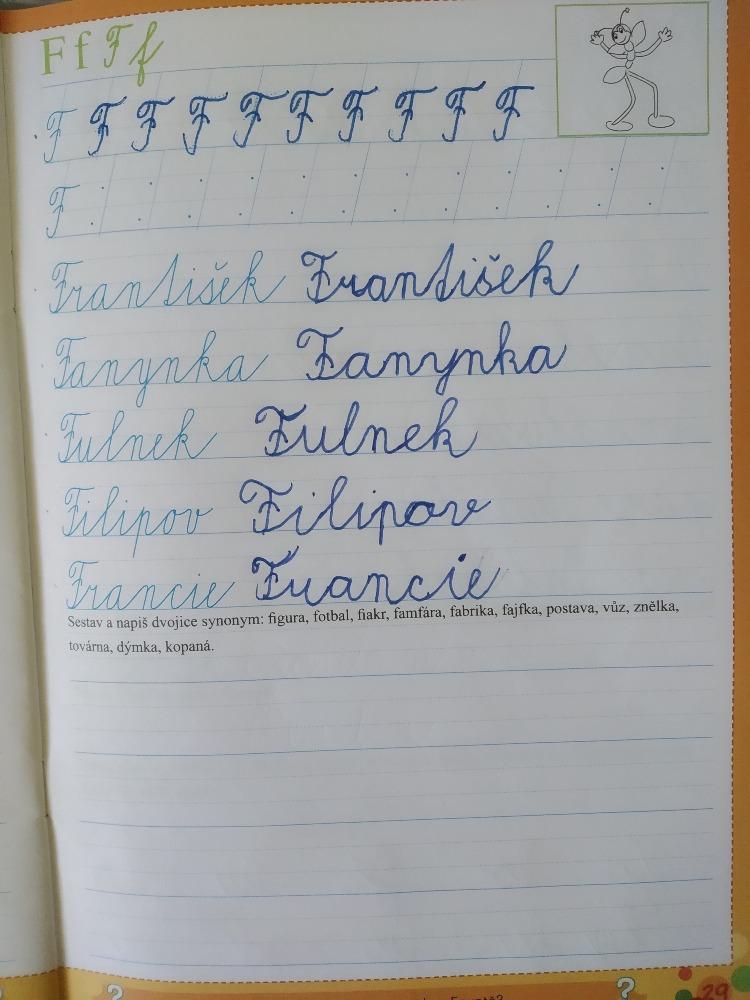 F f F f
F F F F F F F F F F
F
František František
Fanynka Fanynka
Fulnek Fulnek
Filipov Filipov
Francie Francie
Sestav a napiš dvojice synonym: figura, fotbal, fiakr, famfára, fabrika, fajfka, postava, vůz, znělka,
továrna, dýmka, kopaná.
? ?
29